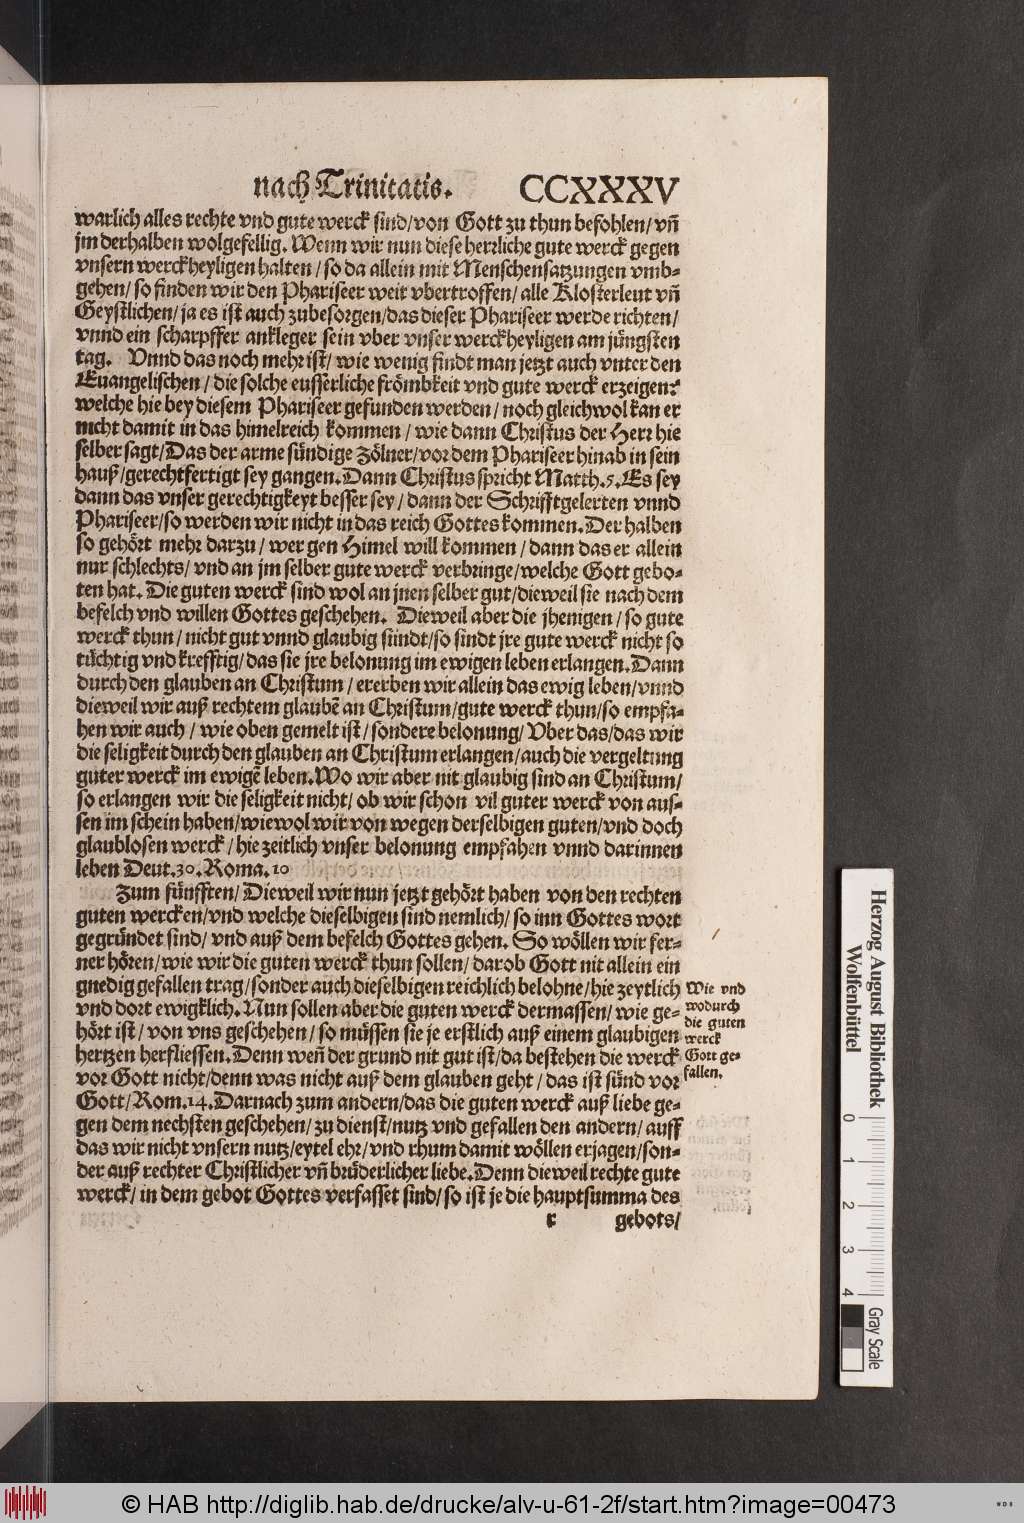 nach Trinitatis. CCXXXV
warlich alles rechte vnd gute werck sind/von Gott zu thun befohlen/ vñ
jm derhalben wolgefellig. Wenn wir nun diese herrliche gute werck gegen
vnsern werckheyligen halten/ so da allein mit Menschensatzungen vmb-
gehen/ so finden wir den Phariseer weit vbertroffen/ alle Klosterleut vñ
Geystlichen/ ja es ist auch zubesorgen/das dieser Phariseer werde richten/
vnnd ein scharpffer ankleger sein vber vnser werckheyligen am jüngsten
tag. Vnnd das noch mehr ist/ wie wenig findt man jetzt auch vnter den
Euangelischen/ die solche eusserliche frömbkeit vnd gute werck erzeigen?
welche hie bey diesem Phariseer gefunden werden/ noch gleichwol kan er
nicht damit in das himelreich kommen/ wie dann Christus der Herr hie
selber sagt/Das der arme sündige Zölner/vor dem Phariseer hinab in sein
hauß/gerechtfertigt sey gangen. Dann Christus spricht Matth.5. Es sey
dann das vnser gerechtigkeyt besser sey/ dann der Schrifftgelerten vnnd
Phariseer/so werden wir nicht in das reich Gottes kommen. Der halben
so gehört mehr darzu/ wer gen Himel will kommen/ dann das er allein
nur schlechts/ vnd an jm selber gute werck verbringe/welche Gott gebo-
ten hat. Die guten werck sind wol an jnen selber gut/dieweil sie nach dem
befelch vnd willen Gottes geschehen. Dieweil aber die jhenigen/ so gute
werck thun/ nicht gut vnnd glaubig sündt/so sindt jre gute werck nicht so
tüchtig vnd krefftig/das sie jre belonung im ewigen leben erlangen. Dann
durch den glauben an Christum/ ererben wir allein das ewig leben/vnnd
dieweil wir auß rechtem glaubē an Christum/gute werck thun/so empfa-
hen wir auch/ wie oben gemelt ist/ sondere belonung/ Vber das/das wir
die seligkeit durch den glauben an Christum erlangen/auch die vergeltung
guter werck im ewigē leben. Wo wir aber nit glaubig sind an Christum/
so erlangen wir die seligkeit nicht/ ob wir schon vil guter werck von aus-
sen im schein haben/wiewol wir von wegen derselbigen guten/vnd doch
glaublosen werck/ hie zeitlich vnser belonung empfahen vnnd darinnen
leben Deut.30. Roma.10
Zum fünfften/ Dieweil wir nun jetzt gehört haben von den rechten
guten wercken/vnd welche dieselbigen sind nemlich/ so inn Gottes wort
gegründet sind/ vnd auß dem befelch Gottes gehen. So wöllen wir fer-
ner hören/wie wir die guten werck thun sollen/ darob Gott nit allein ein
gnedig gefallen trag/sonder auch dieselbigen reichlich belohne/hie zeytlich
vnd dort ewigklich. Nun sollen aber die guten werck dermassen/ wie ge-
hört ist/ von vns geschehen/ so müssen sie je erstlich auß einem glaubigen
hertzen herfliessen. Denn weñ der grund nit gut ist/da bestehen die werck
vor Gott nicht/denn was nicht auß dem glauben geht/ das ist sünd vor
Gott/ Rom.14. Darnach zum andern/das die guten werck auß liebe ge-
gen dem nechsten geschehen/ zu dienst/nutz vnd gefallen den andern/ auff
das wir nicht vnsern nutz/eytel ehr/vnd rhum damit wöllen erjagen/son-
der auß rechter Christlicher vñ brüderlicher liebe. Denn dieweil rechte gute
werck/ in dem gebot Gottes verfasset sind/ so ist je die hauptsumma des
r gebots/
Wie vnd
wodurch
die guten
werck
Gott ge-
fallen.
Herzog August Bibliothek
Wolfenbüttel
0 1 2 3 4
Gray Scale
© HAB http://diglib.hab.de/drucke/alv-u-61-2f/start.htm?image=00473